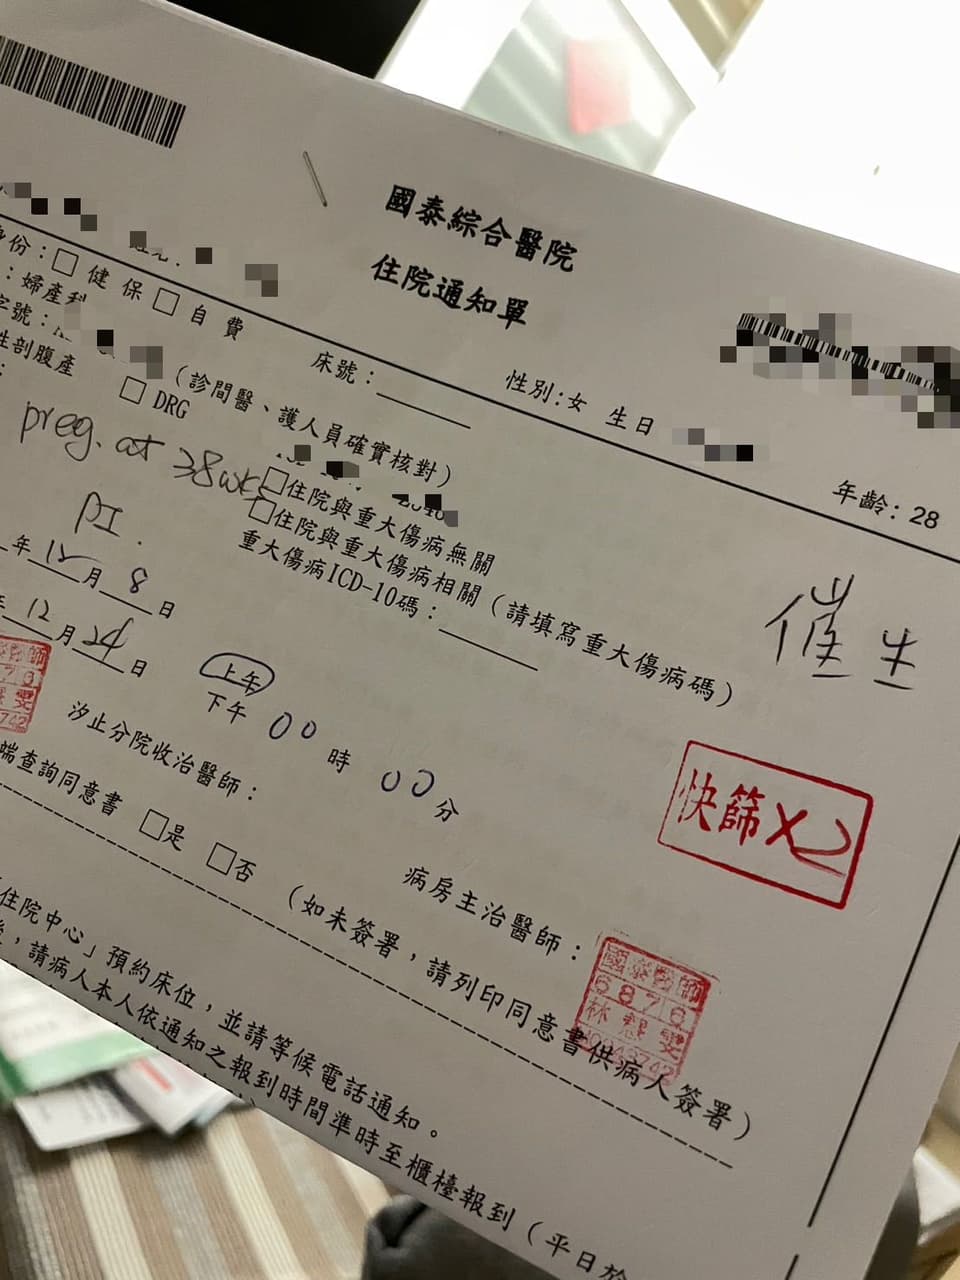 國泰綜合醫院
住院通知單
身份：□ 健保 □ 自費
床號：
性別:女 生日
年齡: 28
：婦產科
字號：
（診間醫、護人員確實核對）
性剖腹產
□ DRG
preg. at 38wks
□住院與重大傷病無關
□住院與重大傷病相關（請填寫重大傷病碼）
重大傷病ICD-10碼：
催生
PI.
年 12 月 8 日
年 12 月 24 日
上午
下午 00 時 00 分
快篩 X2
汐止分院收治醫師：
病房主治醫師：
國泰醫師
6876
端查詢同意書 □是 □否 （如未簽署，請列印同意書供病人簽署）
住院中心」預約床位，並請等候電話通知。
，請病人本人依通知之報到時間準時至櫃檯報到（平日於